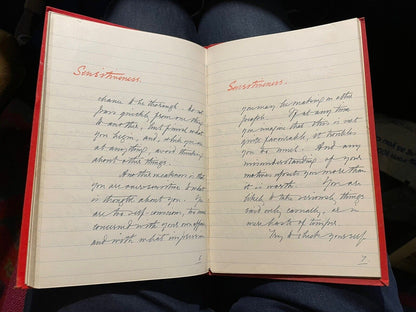 Sensitiveness.
chance to be thorough. Do not
pass quickly from one thing
to another, but finish what
you begin, and, while you are
at anything, avoid thinking
about other things.
Another weakness is that
you are oversensitive to what
is thought about you. You
are too self-conscious, too much
concerned with your own affairs
and with what impression
6
Sensitiveness.
you may be making on other
people. If at any time
you imagine that this is not
quite favourable, it troubles
you too much. And any
misunderstanding of your
motives upsets you more than
it is worth. You are
likely to take seriously, things
said only casually, or in
mere haste of temper.
Try to check yourself
7